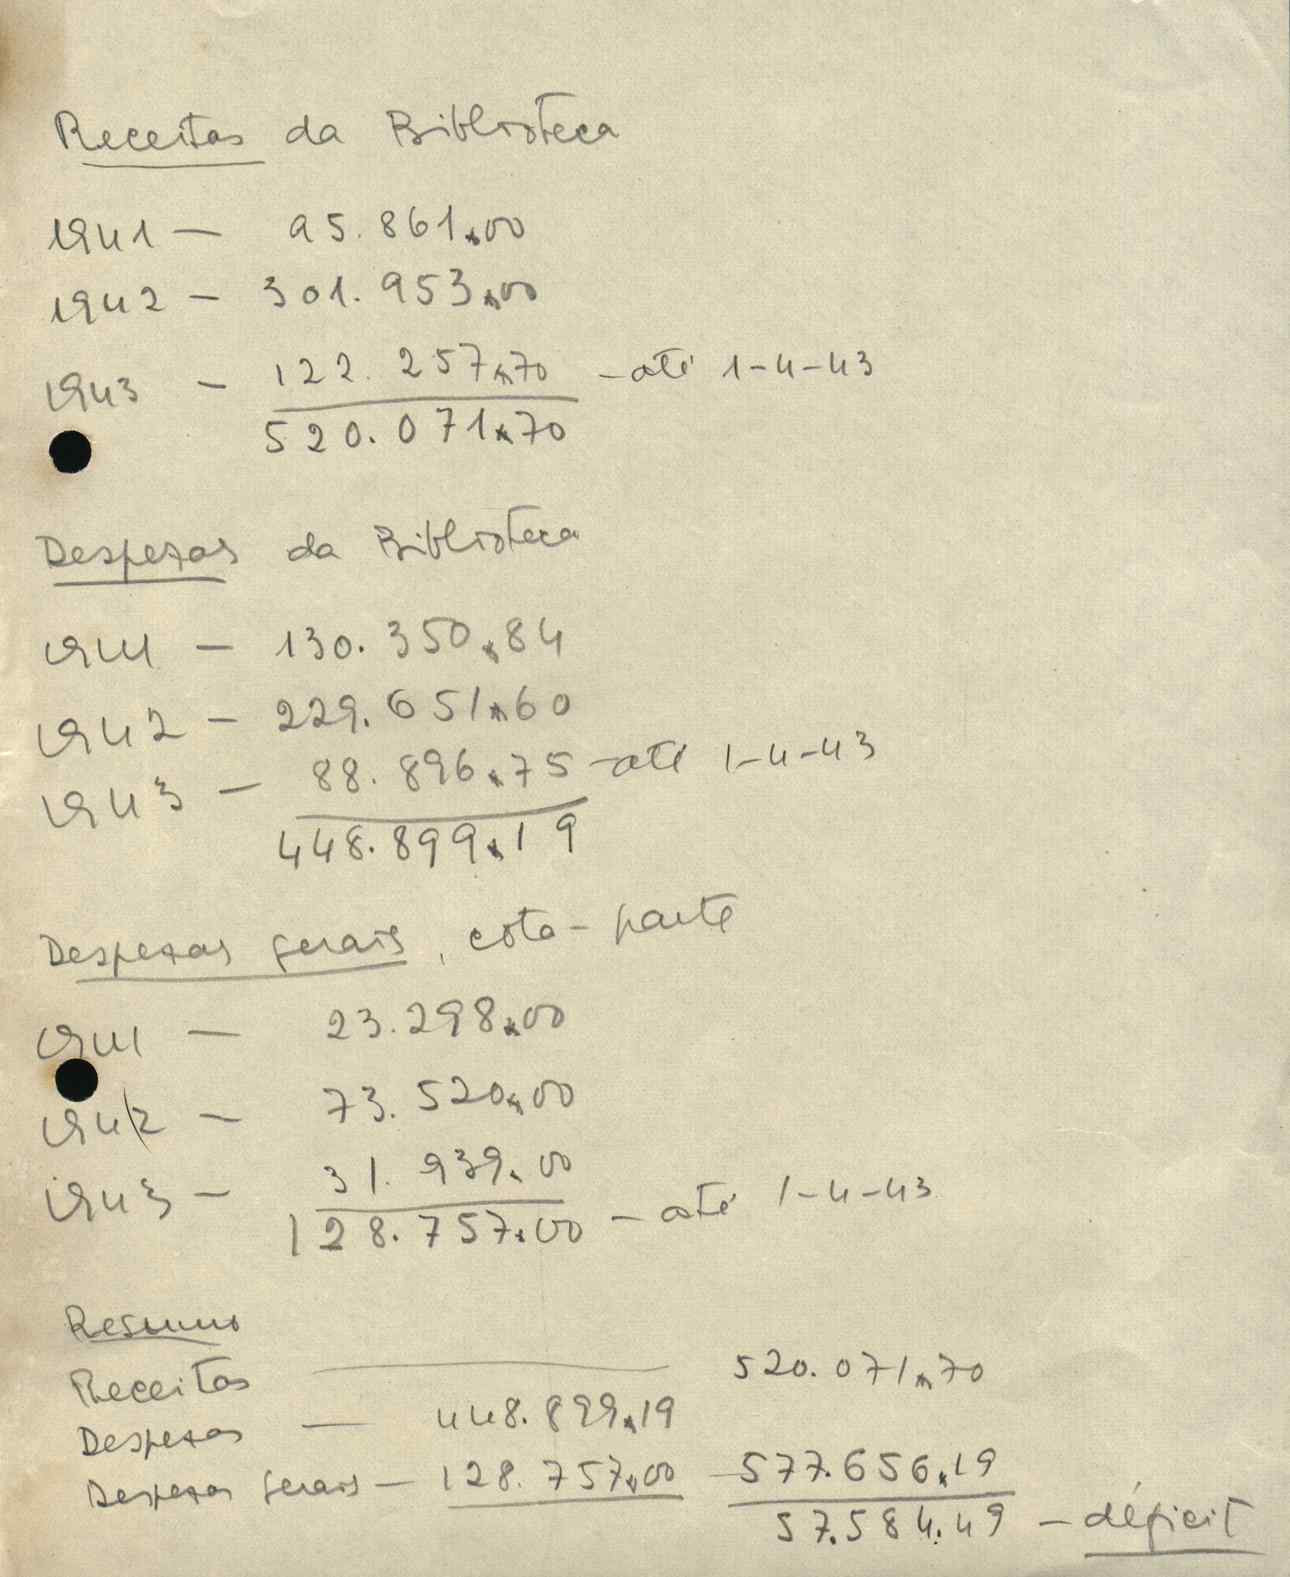 Receitas da Biblioteca
1941 — 95.861,00
1942 — 301.953,00
1943 — 122.257,70 — até 1-4-43
520.071,70
Despezas da Biblioteca
1941 — 130.350,84
1942 — 229.651,60
1943 — 88.896,75 — até 1-4-43
448.899,19
Despezas gerais, cota-parte
1941 — 23.298,00
1942 — 73.520,00
1943 — 31.939,00
128.757,00 — até 1-4-43
Resumo
Receitas — 520.071,70
Despezas — 448.899,19
Despezas gerais — 128.757,00 577.656,19
57.584,49 — déficit